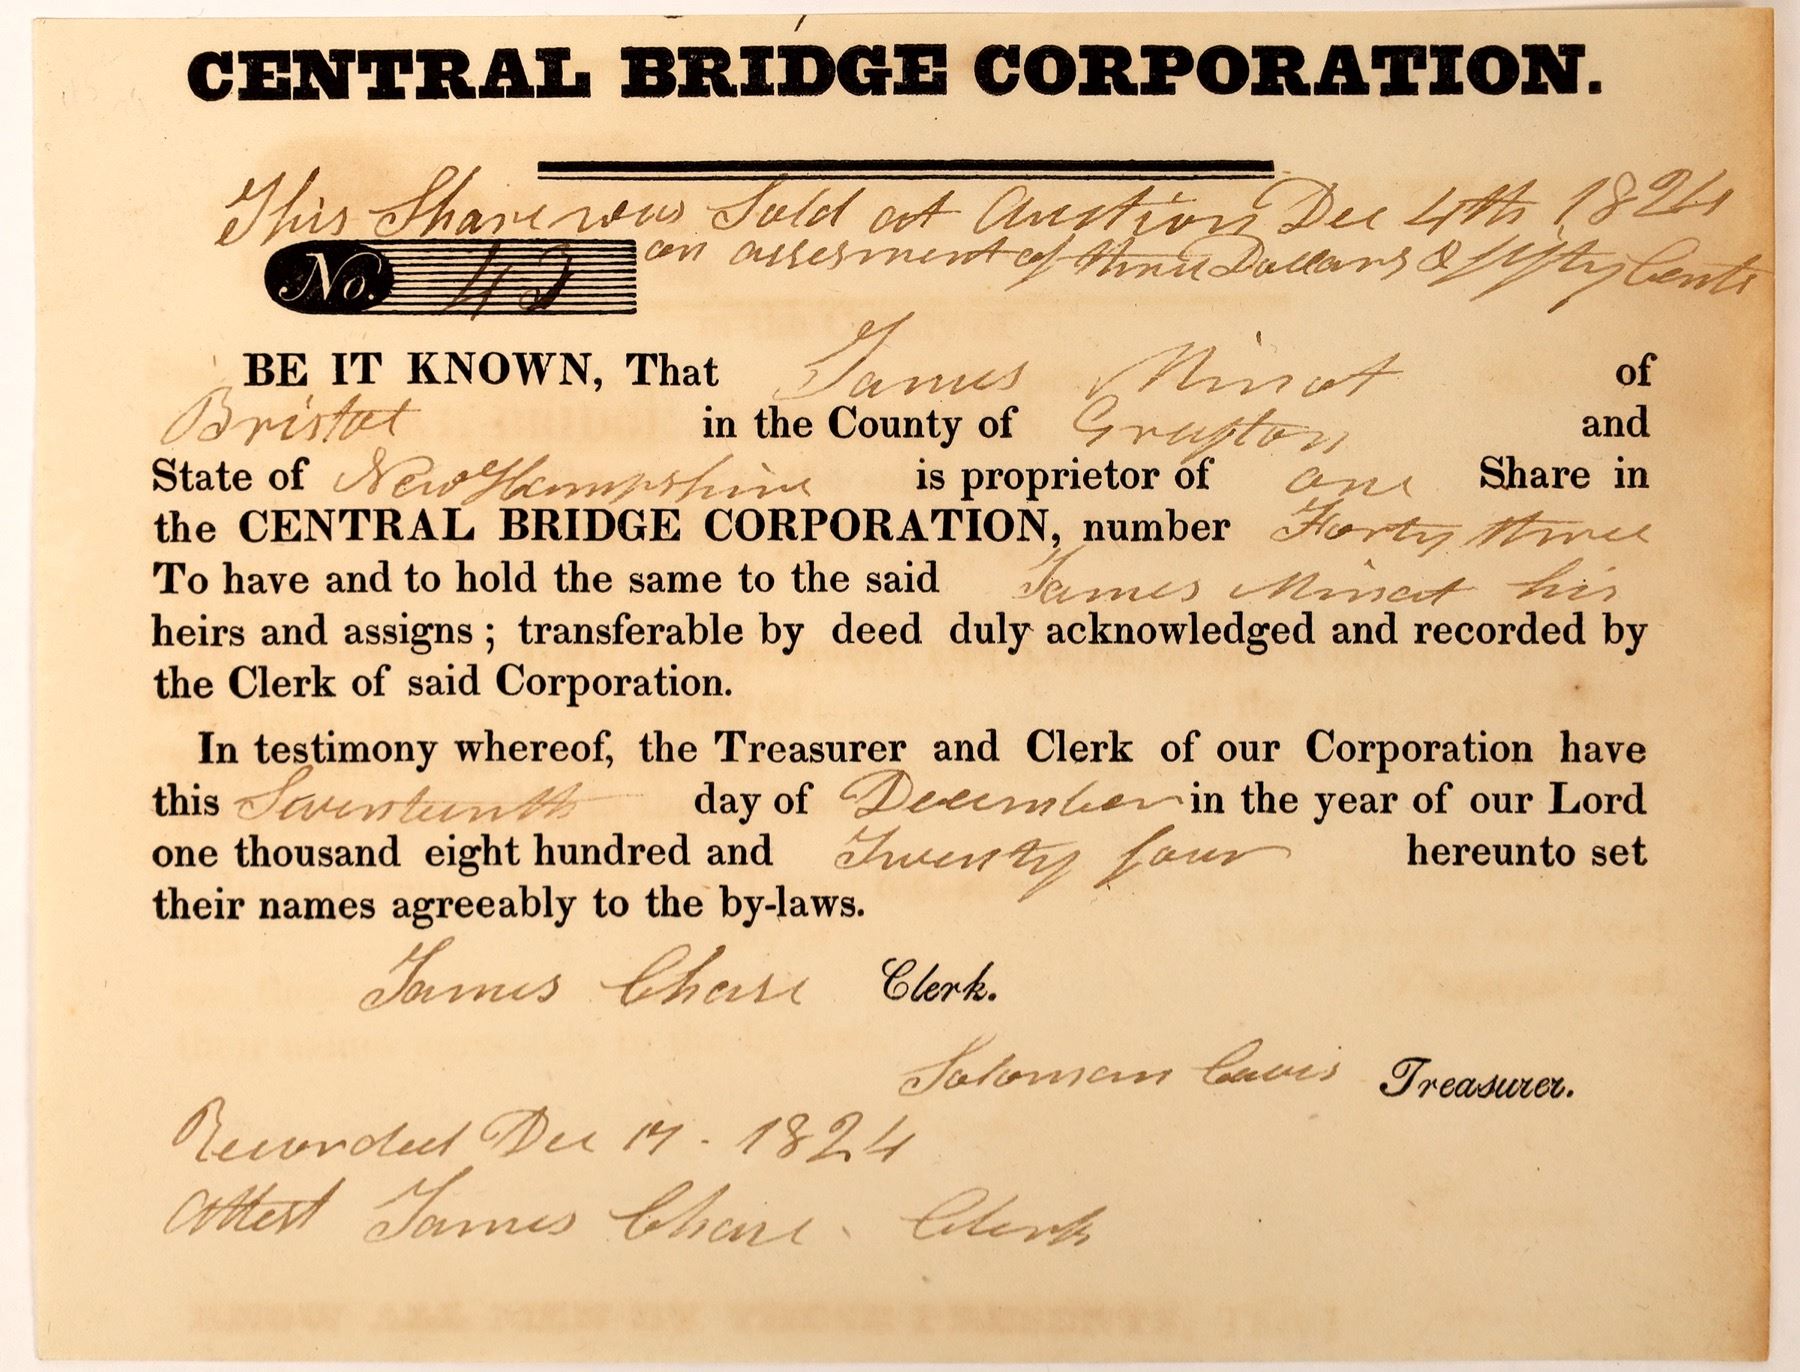 CENTRAL BRIDGE CORPORATION.
This Share was Sold at Auction Dec 4th 1824
on assesment of three Dollars & fifty Cents
No. 43
BE IT KNOWN, That James Minot of
Bristol in the County of Grafton and
State of New Hampshire is proprietor of one Share in
the CENTRAL BRIDGE CORPORATION, number Forty three
To have and to hold the same to the said James Minot his
heirs and assigns; transferable by deed duly acknowledged and recorded by
the Clerk of said Corporation.
In testimony whereof, the Treasurer and Clerk of our Corporation have
this Seventeenth day of December in the year of our Lord
one thousand eight hundred and Twenty four hereunto set
their names agreeably to the by-laws.
James Chase Clerk.
Soloman Cavis Treasurer.
Recorded Dec 17. 1824
Attest James Chase. Clerk
KNOW ALL MEN BY THESE PRESENTS, That I